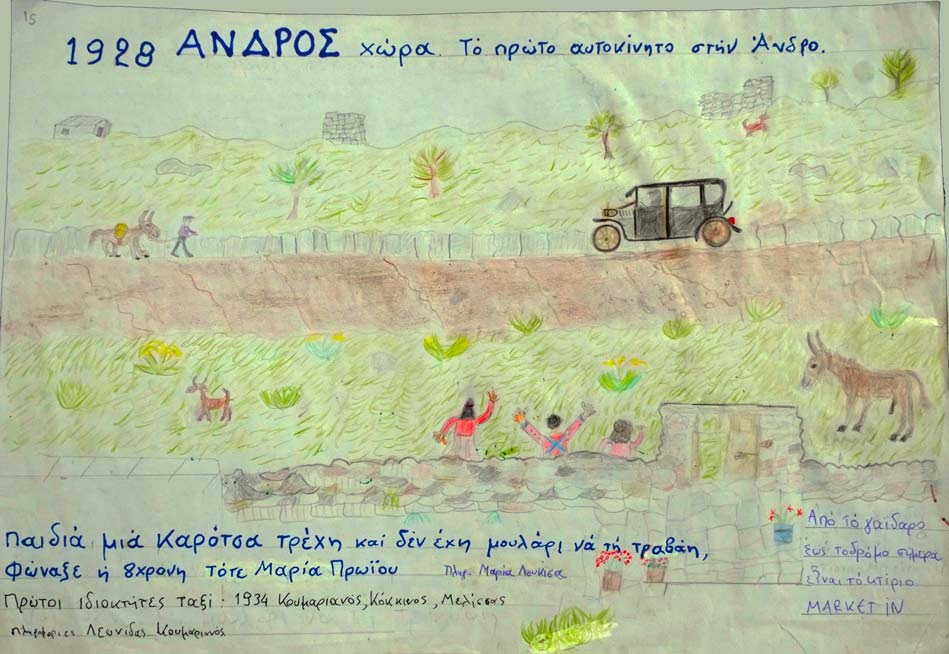 15
1928 ΑΝΔΡΟΣ χώρα. Τὸ πρῶτο αυτοκίνητο στήν Άνδρο.
Παιδιά μιά Καρότσα τρέχη καί δέν έχη μουλάρι νά τή τραβάη,
Φώναξε ή 8χρονη τότε Μαρία Πρωΐου Πληρ. Μαρία Λουκίσα
Πρώτοι ιδιοκτήτες ταξί : 1934 Κουμαριανός, Κόκκινος, Μελίσσας
πληροφορίες Λεωνίδας Κουμαριανός.
Από τό γαϊδαρο
έως τοδρόμο σήμερα
εἶναι τό κτίριο
MARKET IN